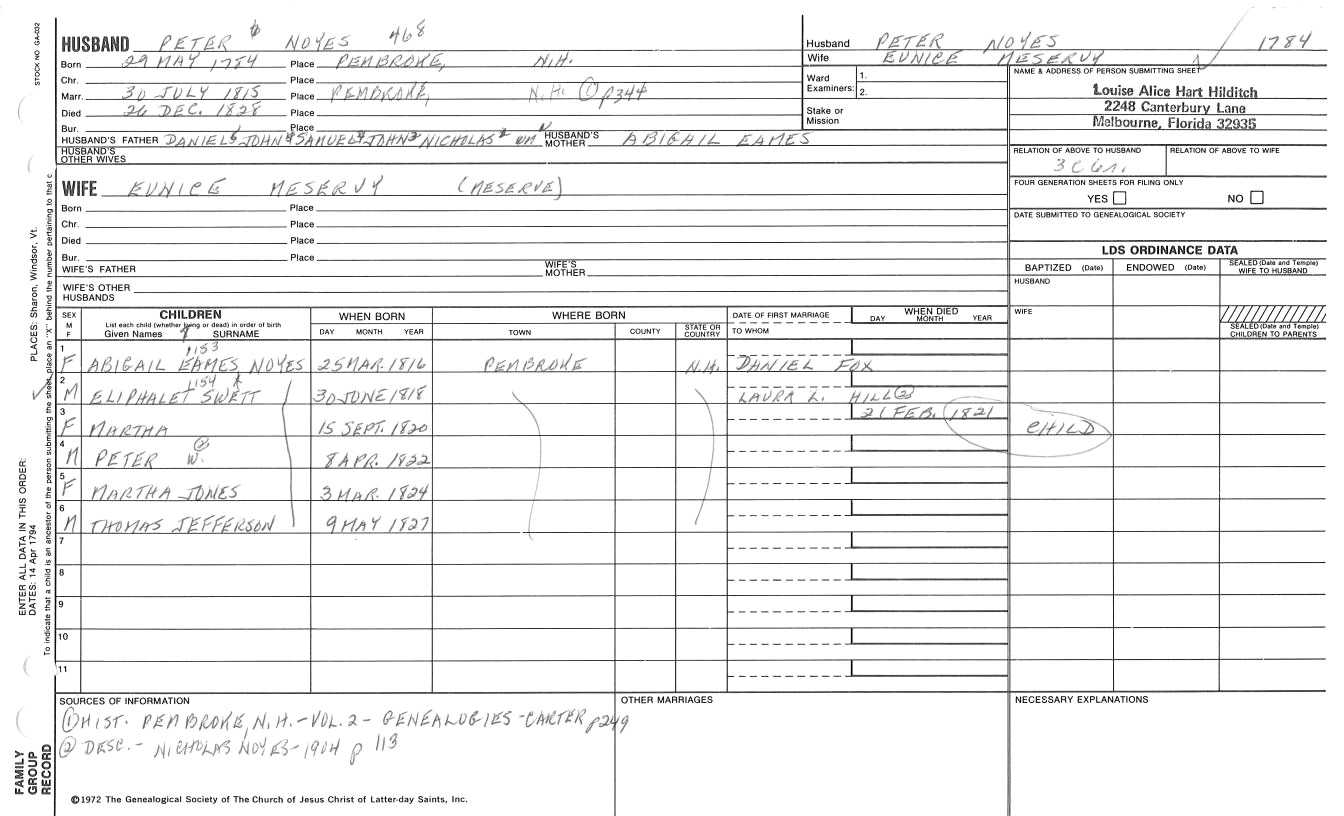 STOCK NO GA-032
HUSBAND PETER NOYES 468
Born 29 MAY 1784 Place PEMBROKE, N.H.
Chr. Place
Marr. 30 JULY 1815 Place PEMBROKE, N.H. ① p344
Died 26 DEC. 1828 Place
Bur. Place
HUSBAND'S FATHER DANIEL JOHN SAMUEL JOHN NICHOLAS WM HUSBAND'S MOTHER ABIGAIL EAMES
HUSBAND'S OTHER WIVES
WIFE EUNICE MESERVY (MESERVE)
Born Place
Chr. Place
Died Place
Bur. Place
WIFE'S FATHER WIFE'S MOTHER
WIFE'S OTHER HUSBANDS
Husband PETER NOYES 1784
Wife EUNICE MESERVY
Ward Examiners: 1. 2.
Stake or Mission
NAME & ADDRESS OF PERSON SUBMITTING SHEET
Louise Alice Hart Hilditch
2248 Canterbury Lane
Melbourne, Florida 32935
RELATION OF ABOVE TO HUSBAND RELATION OF ABOVE TO WIFE
FOUR GENERATION SHEETS FOR FILING ONLY
YES NO
DATE SUBMITTED TO GENEALOGICAL SOCIETY
LDS ORDINANCE DATA
BAPTIZED (Date) ENDOWED (Date) SEALED (Date and Temple) WIFE TO HUSBAND
HUSBAND
WIFE
SEALED (Date and Temple) CHILDREN TO PARENTS
SEX M F
CHILDREN
List each child (whether living or dead) in order of birth
Given Names SURNAME
WHEN BORN
DAY MONTH YEAR
WHERE BORN
TOWN COUNTY STATE OR COUNTRY
DATE OF FIRST MARRIAGE
TO WHOM
WHEN DIED
DAY MONTH YEAR
1153
1 F ABIGAIL EAMES NOYES 25 MAR. 1816 PEMBROKE N.H. DANIEL FOX
1154
2 M ELIPHALET SWETT 30 JUNE 1818 LAURA L. HILL ②
3 F MARTHA 15 SEPT. 1820 21 FEB. 1821 CHILD
4 M PETER W. ② 8 APR. 1822
5 F MARTHA JONES 3 MAR. 1824
6 M THOMAS JEFFERSON 9 MAY 1827
7
8
9
10
11
SOURCES OF INFORMATION
① HIST. PEMBROKE, N.H. - VOL. 2 - GENEALOGIES - CARTER p249
② DESC. - NICHOLAS NOYES - 1904 p 113
OTHER MARRIAGES
NECESSARY EXPLANATIONS
©1972 The Genealogical Society of The Church of Jesus Christ of Latter-day Saints, Inc.
FAMILY GROUP RECORD
ENTER ALL DATA IN THIS ORDER:
DATES: 14 Apr 1794
PLACES: Sharon, Windsor, Vt.
To indicate that a child is an ancestor of the person submitting the sheet, place an "X" behind the number pertaining to that c